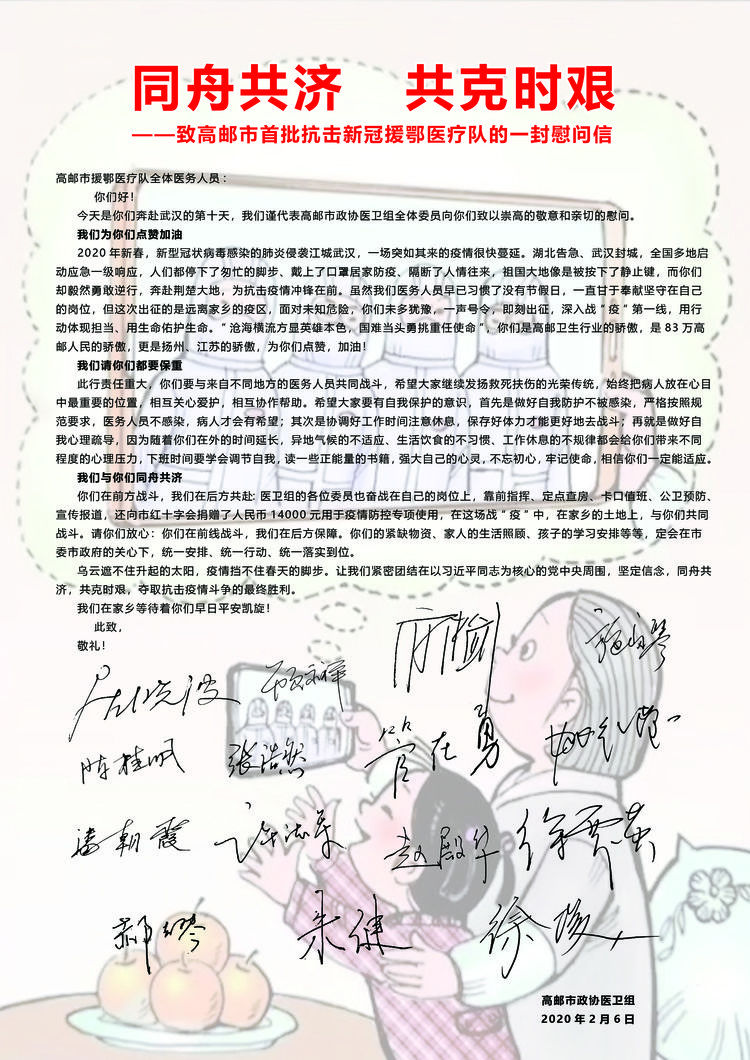 同舟共济 共克时艰
——致高邮市首批抗击新冠援鄂医疗队的一封慰问信
高邮市援鄂医疗队全体医务人员：
你们好！
今天是你们奔赴武汉的第十天，我们谨代表高邮市政协医卫组全体委员向你们致以崇高的敬意和亲切的慰问。
我们为你们点赞加油
2020年新春，新型冠状病毒感染的肺炎侵袭江城武汉，一场突如其来的疫情很快蔓延。湖北告急、武汉封城，全国多地启
动应急一级响应，人们都停下了匆忙的脚步、戴上了口罩居家防疫、隔断了人情往来，祖国大地像是被按下了静止键，而你们
却毅然勇敢逆行，奔赴荆楚大地，为抗击疫情冲锋在前。虽然我们医务人员早已习惯了没有节假日，一直甘于奉献坚守在自己
的岗位，但这次出征的是远离家乡的疫区，面对未知危险，你们未多犹豫，一声号令，即刻出征，深入战“疫”第一线，用行
动体现担当、用生命佑护生命。“沧海横流方显英雄本色，国难当头勇挑重任使命”，你们是高邮卫生行业的骄傲，是83万高
邮人民的骄傲，更是扬州、江苏的骄傲，为你们点赞，加油！
我们请你们都要保重
此行责任重大，你们要与来自不同地方的医务人员共同战斗，希望大家继续发扬救死扶伤的光荣传统，始终把病人放在心目
中最重要的位置，相互关心爱护，相互协作帮助。希望大家要有自我保护的意识，首先是做好自我防护不被感染，严格按照规
范要求，医务人员不感染，病人才会有希望；其次是协调好工作时间注意休息，保存好体力才能更好地去战斗；再就是做好自
我心理疏导，因为随着你们在外的时间延长，异地气候的不适应、生活饮食的不习惯、工作休息的不规律都会给你们带来不同
程度的心理压力，下班时间要学会调节自我，读一些正能量的书籍，强大自己的心灵，不忘初心，牢记使命，相信你们一定能适应。
我们与你们同舟共济
你们在前方战斗，我们在后方共赴：医卫组的各位委员也奋战在自己的岗位上，靠前指挥、定点查房、卡口值班、公卫预防、
宣传报道，还向市红十字会捐赠了人民币14000元用于疫情防控专项使用，在这场战“疫”中，在家乡的土地上，与你们共同
战斗。请你们放心：你们在前线战斗，我们在后方保障。你们的紧缺物资、家人的生活照顾、孩子的学习安排等等，定会在市
委市政府的关心下，统一安排、统一行动、统一落实到位。
乌云遮不住升起的太阳，疫情挡不住春天的脚步。让我们紧密团结在以习近平同志为核心的党中央周围，坚定信念，同舟共
济，共克时艰，夺取抗击疫情斗争的最终胜利。
我们在家乡等待着你们早日平安凯旋！
此致，
敬礼！
陈桂凤 张浩然 管在勇
潘朝霞 赵殿华
朱健 徐俊
高邮市政协医卫组
2020年2月6日